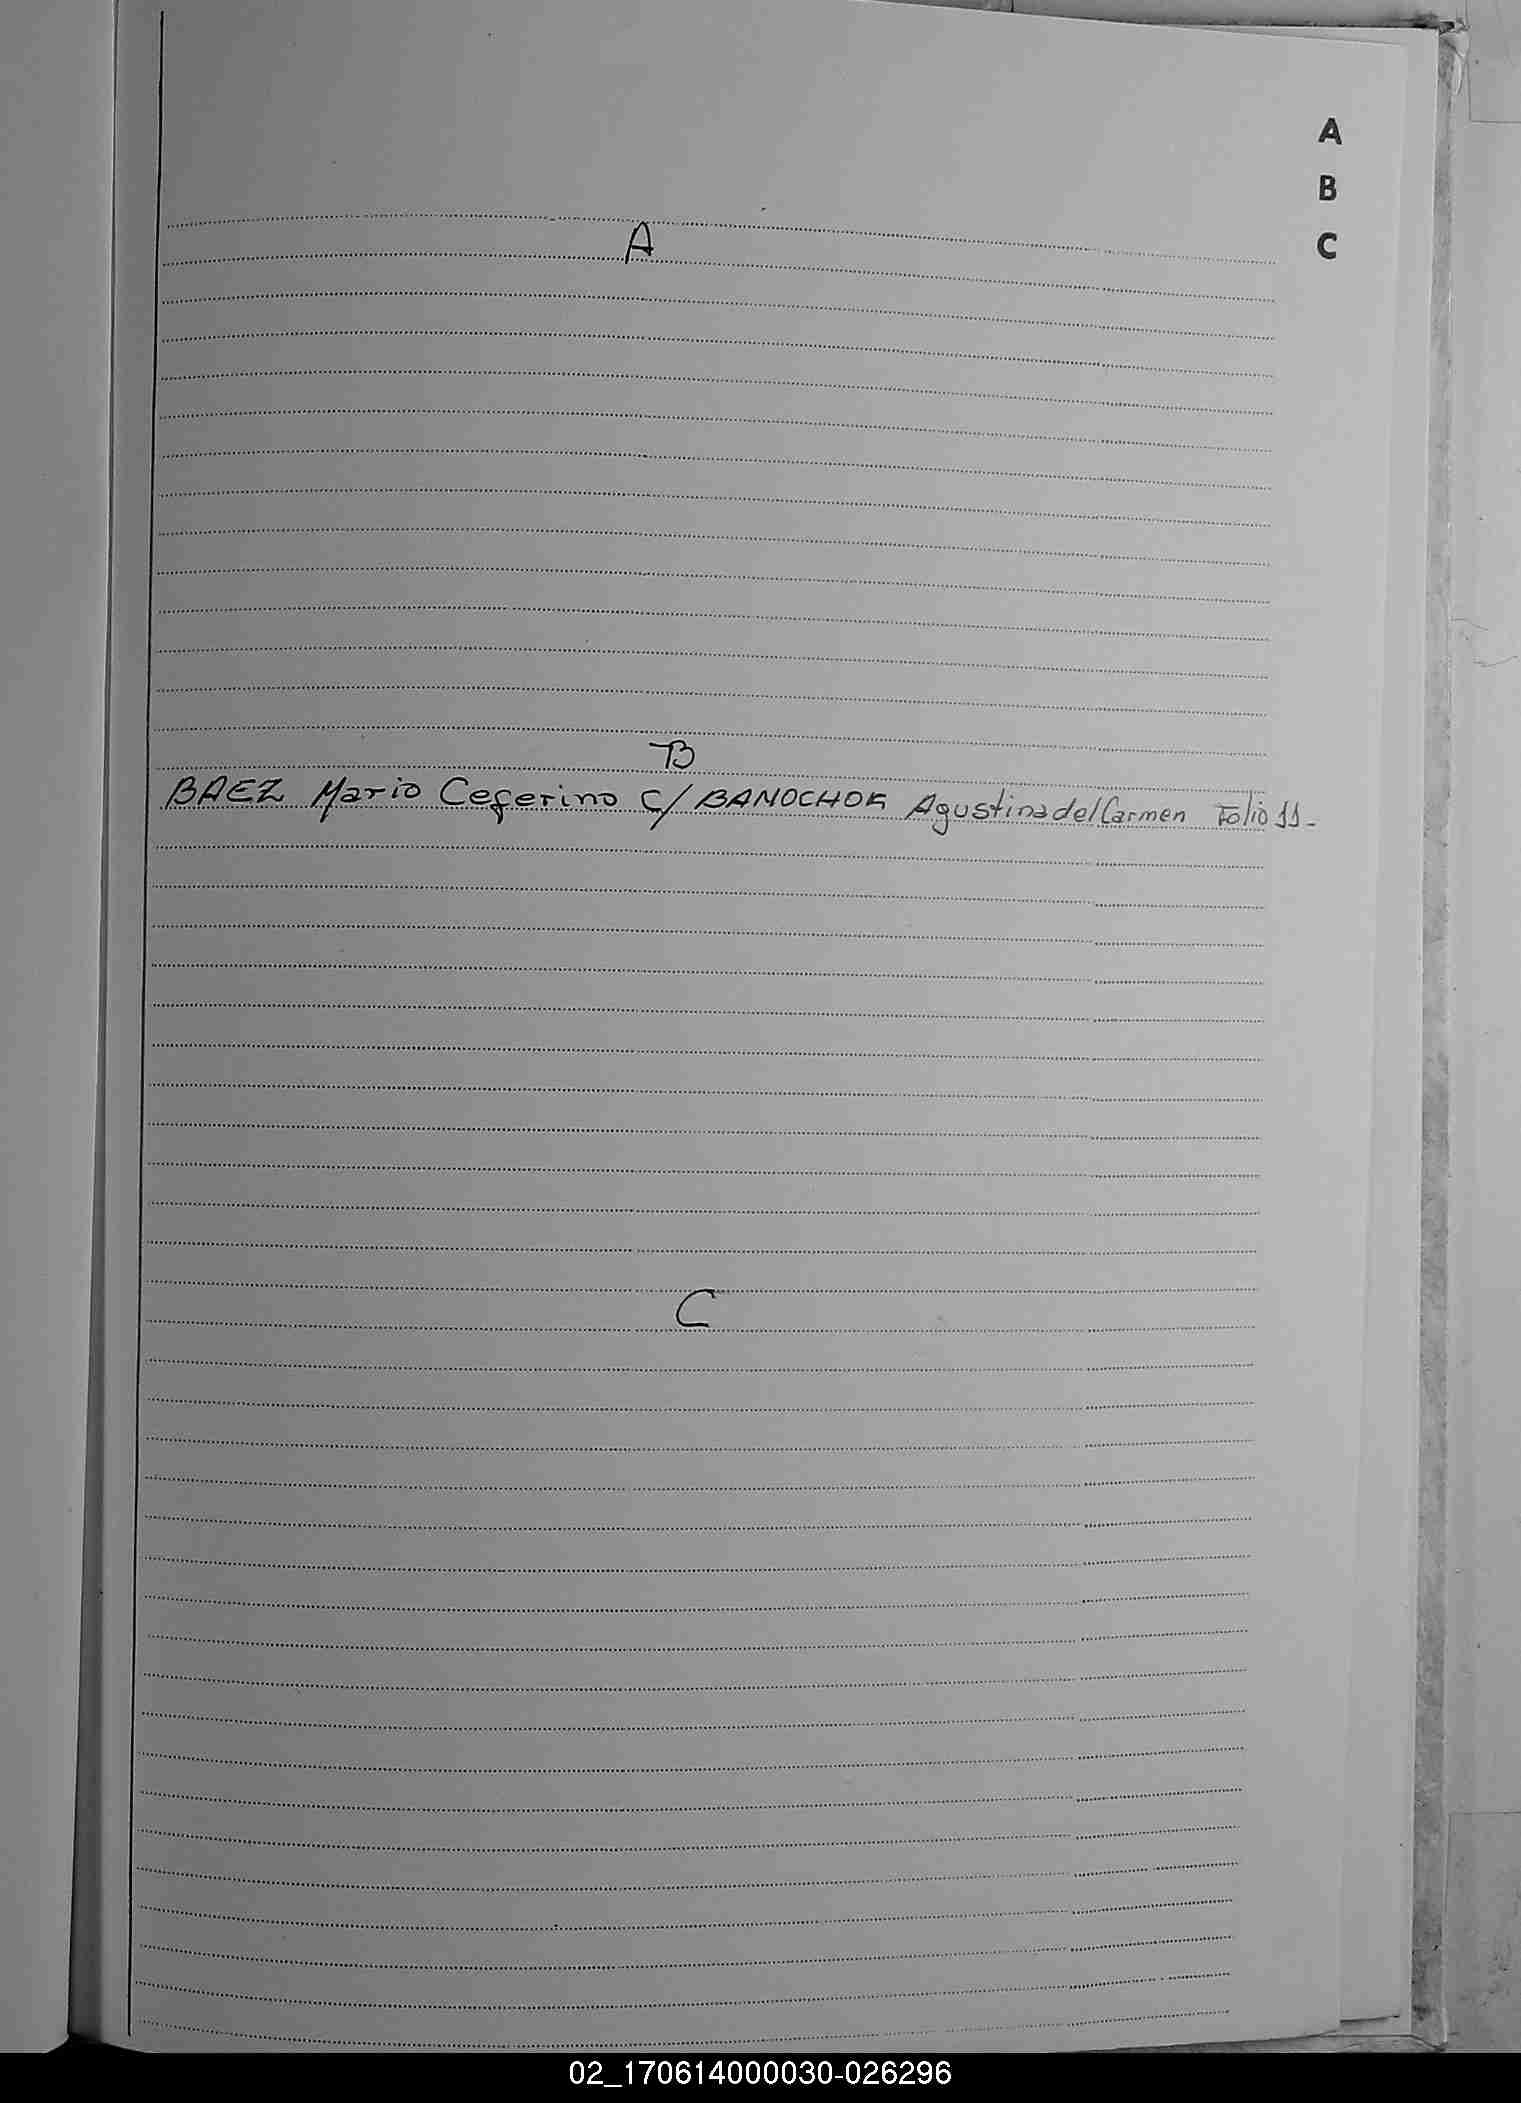 A
B
C
A
B
BAEZ Mario Ceferino C/ BANOCHOK Agustina del Carmen Folio 11-
C
02_170614000030-026296